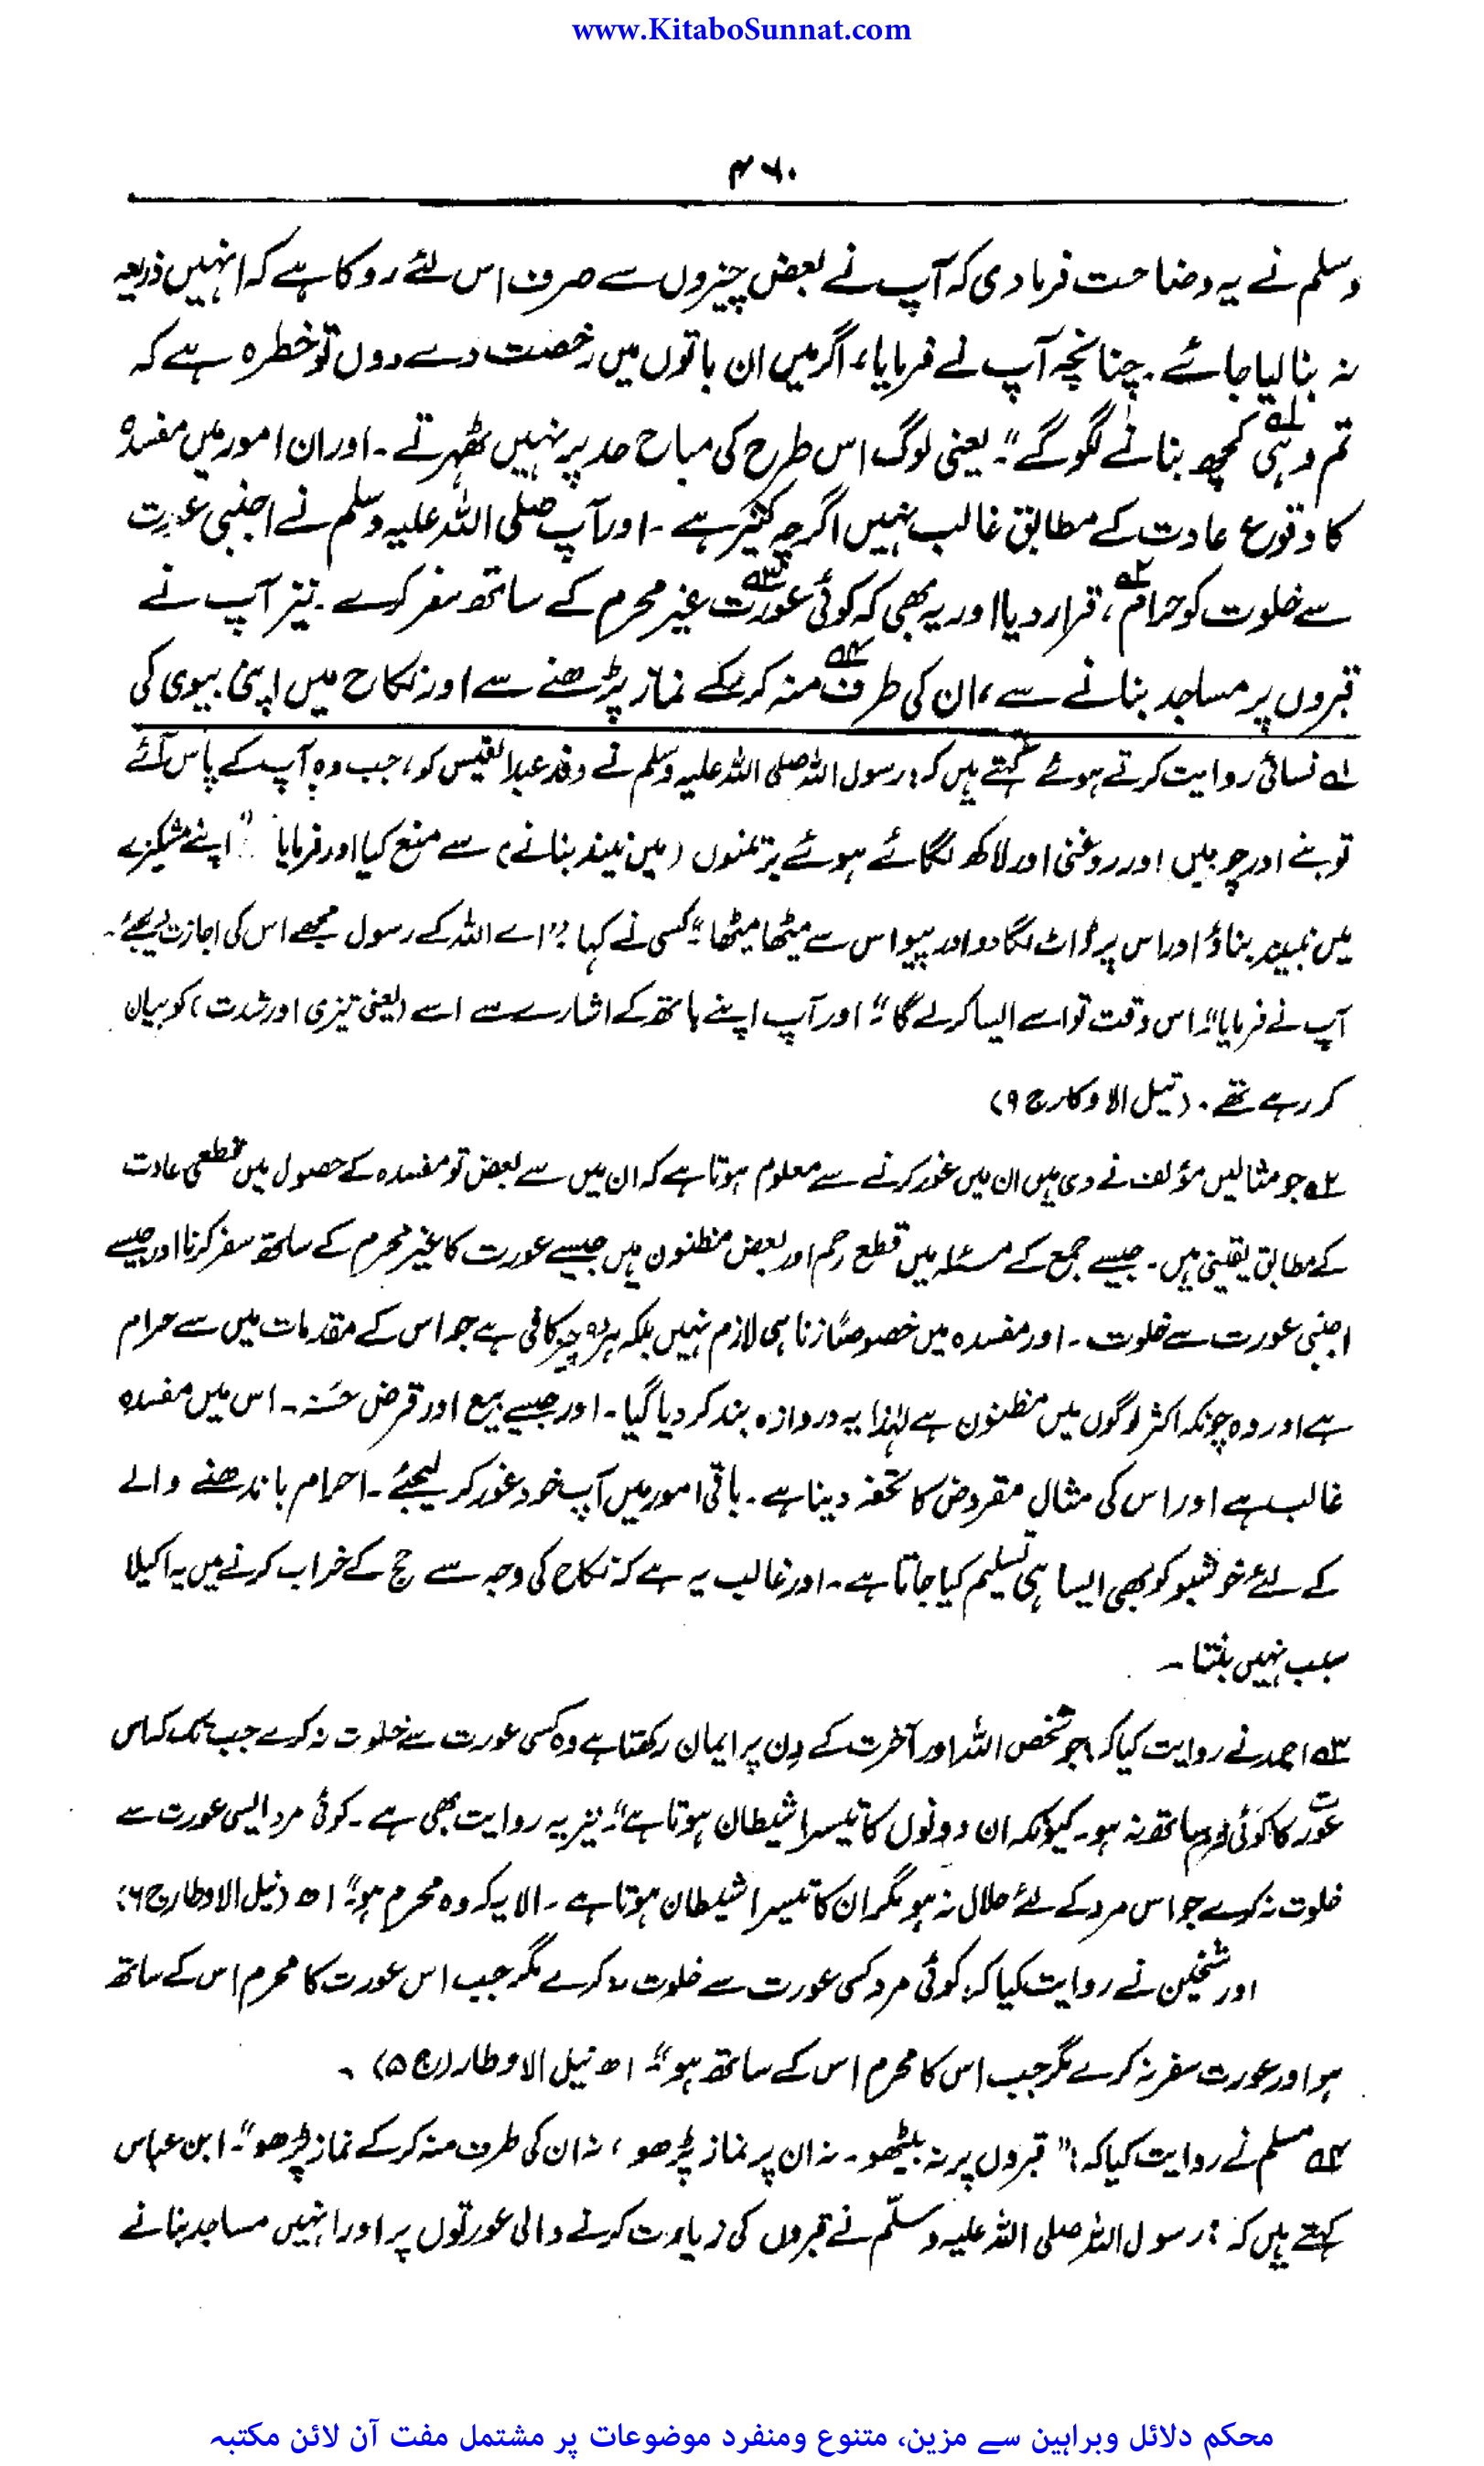 www.KitaboSunnat.com
۴۶۰
وسلم نے یہ وضاحت فرما دی کہ آپ نے بعض چیزوں سے صرف اس لئے روکا ہے کہ انہیں ذریعہ
نہ بنا لیا جائے۔ چنانچہ آپ نے فرمایا، اگر میں ان باتوں میں رخصت دے دوں تو خطرہ ہے کہ
تم وہی کچھ بنانے لگو گے"۱؎ یعنی لوگ اس طرح کی مباح حد پر نہیں ٹھہرتے۔ اور ان امور میں مفسدہ
کا وقوع عادت کے مطابق غالب نہیں اگرچہ کثیر ہے۔ اور آپ صلی اللہ علیہ وسلم نے اجنبی عورت
سے خلوت کو حرام۲؎، قرار دیا اور یہ بھی کہ کوئی عورت۳؎ غیر محرم کے ساتھ سفر کرے۔ نیز آپ نے
قبروں پر مساجد بنانے سے، ان کی طرف۴؎ منہ کر کے نماز پڑھنے سے اور نکاح میں اپنی بیوی کی
۱؎ نسائی روایت کرتے ہوئے کہتے ہیں کہ: رسول اللہ صلی اللہ علیہ وسلم نے وفد عبدالقیس کو، جب وہ آپ کے پاس آئے
تونبے اور چوبیں اور روغنی اور لاکھ لگائے ہوئے برتنوں (میں نبیذ بنانے) سے منع کیا اور فرمایا: "اپنے مشکیزے
میں نبیذ بناؤ اور اس پر ڈاٹ لگا دو اور پیو اس سے میٹھا میٹھا" کسی نے کہا: "اے اللہ کے رسول مجھے اس کی اجازت دیجئے۔
آپ نے فرمایا "اس وقت تو اسے ایسا کر لے گا" اور آپ اپنے ہاتھ کے اشارے سے اسے (یعنی تیزی اور شدت) کو بیان
کر رہے تھے۔ (نیل الاوکار ج ۹)
۲؎ جو مثالیں مؤلف نے دی ہیں ان میں غور کرنے سے معلوم ہوتا ہے کہ ان میں سے بعض تو مفسدہ کے حصول میں قطعی عادت
کے مطابق یقینی ہیں۔ جیسے جمع کے مسئلہ میں قطع رحم اور بعض مظنون ہیں جیسے عورت کا غیر محرم کے ساتھ سفر کرنا اور جیسے
اجنبی عورت سے خلوت۔ اور مفسدہ میں خصوصاً زنا ہی لازم نہیں بلکہ ہر وہ چیز کافی ہے جو اس کے مقدمات میں سے حرام
ہے اور وہ چونکہ اکثر لوگوں میں مظنون ہے لہٰذا یہ دروازہ بند کر دیا گیا۔ اور جیسے بیع اور قرض حسنہ۔ اس میں مفسدہ
غالب ہے اور اس کی مثال مقروض کا تحفہ دینا ہے۔ باقی امور میں آپ خود غور کر لیجئے۔ احرام باندھنے والے
کے لئے خوشبو کو بھی ایسا ہی تسلیم کیا جاتا ہے۔ اور غالب یہ ہے کہ نکاح کی وجہ سے حج کے خراب کرنے میں یہ اکیلا
سبب نہیں بنتا۔
۳؎ احمد نے روایت کیا کہ: جو شخص اللہ اور آخرت کے دن پر ایمان رکھتا ہے وہ کسی عورت سے خلوت نہ کرے جب تک کہ اس
عورت کا کوئی محرم ساتھ نہ ہو۔ کیونکہ ان دونوں کا تیسرا شیطان ہوتا ہے" نیز یہ روایت بھی ہے۔ کوئی مرد ایسی عورت سے
خلوت نہ کرے جو اس مرد کے لئے حلال نہ ہو مگر ان کا تیسرا شیطان ہوتا ہے۔ الا یہ کہ وہ محرم ہو" اھ (نیل الاوطار ج ۶)
اور شیخین نے روایت کیا کہ: کوئی مرد کسی عورت سے خلوت نہ کرے مگر جب اس عورت کا محرم اس کے ساتھ
ہو اور عورت سفر نہ کرے مگر جب اس کا محرم اس کے ساتھ ہو" اھ نیل الاوطار (ج ۵)۔
۴؎ مسلم نے روایت کیا کہ: "قبروں پر نہ بیٹھو۔ نہ ان پر نماز پڑھو، نہ ان کی طرف منہ کر کے نماز پڑھو"۔ ابن عباس
کہتے ہیں کہ: رسول اللہ صلی اللہ علیہ وسلّم نے قبروں کی زیارت کرنے والی عورتوں پر اور انہیں مساجد بنانے
محکم دلائل وبراہین سے مزین، متنوع ومنفرد موضوعات پر مشتمل مفت آن لائن مکتبہ